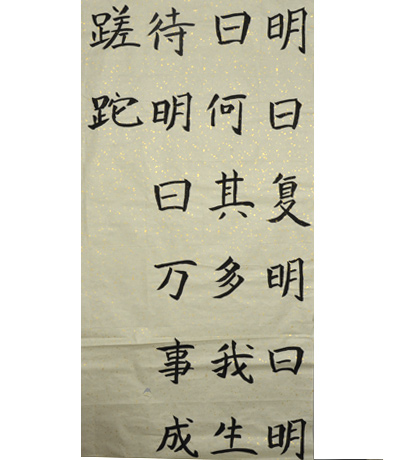 明日复明日明
日何其多我生
待明日万事成
蹉跎